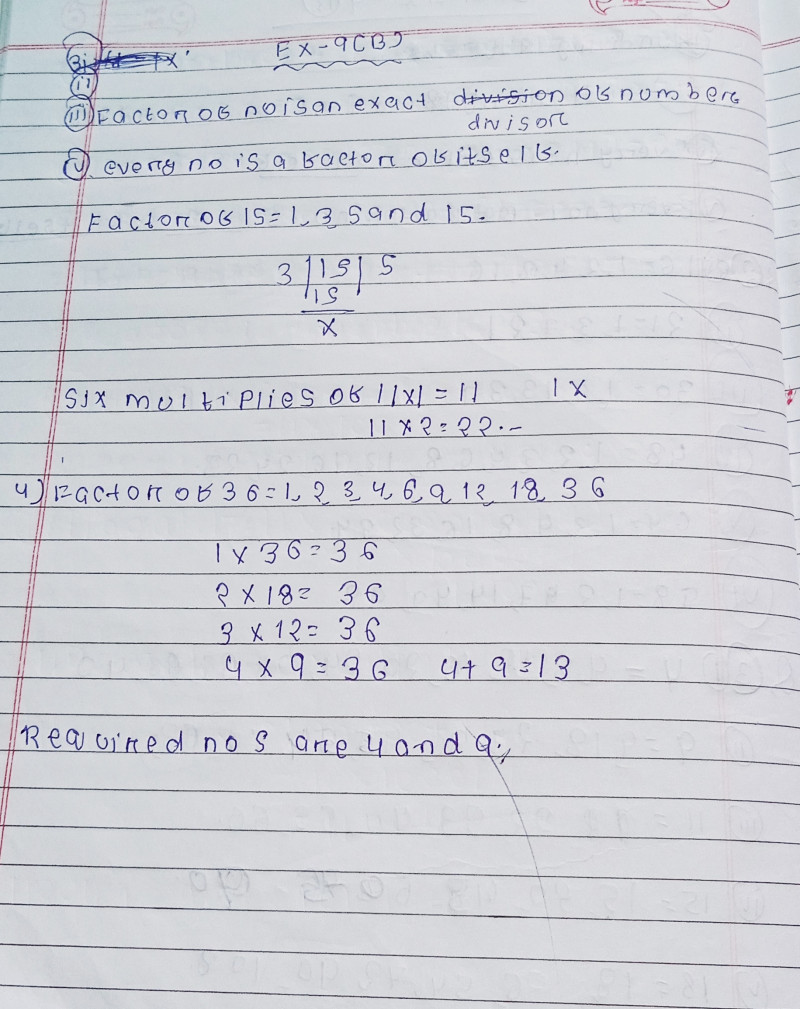 Ex-9(B)
3i)
ii)
iii) Factor of no is an exact division of number
divisor
v) every no is a factor of itself.
Factor of 15 = 1, 3, 5 and 15.
3 | 15 | 5
15
x
Six multiplies of 11x1 = 11 1x
11 x 2 = 22.-
4) Factor of 36 = 1, 2, 3, 4, 6, 9, 12, 18, 36
1 x 36 = 36
2 x 18 = 36
3 x 12 = 36
4 x 9 = 36 4 + 9 = 13
Required no s are 4 and 9.